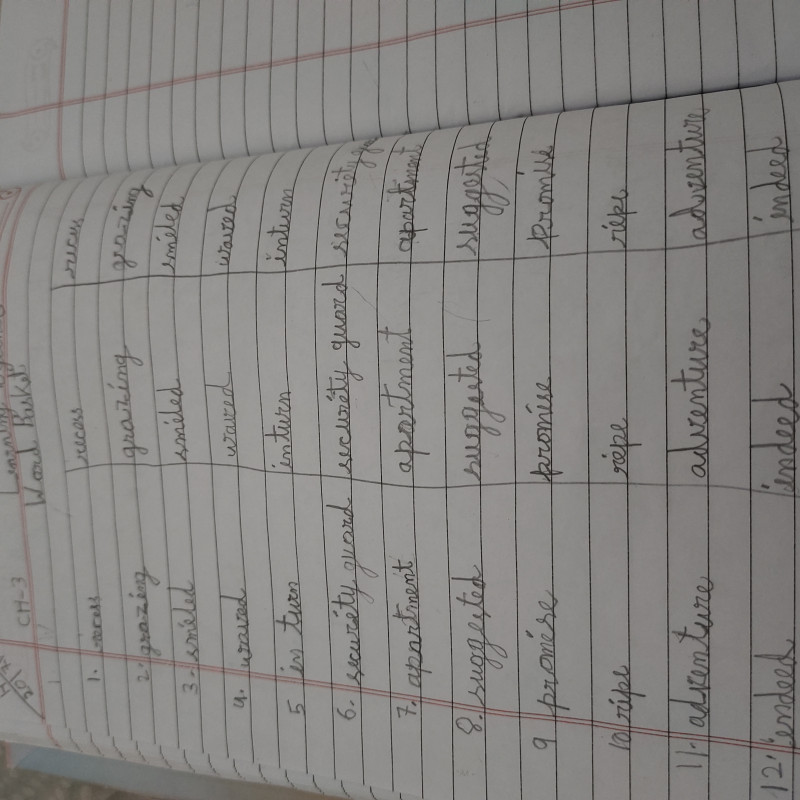 CH-3
Word Basket
1. recess recess recess
2. grazing grazing grazing
3. smiled smiled smiled
4. waved waved waved
5 in turn inturn inturn
6. security guard security guard security
7. apartment apartment apartment
8. suggested suggested suggested
9 promise promise promise
10 ripe ripe ripe
11. adventure adventure adventure
12. indeed indeed indeed